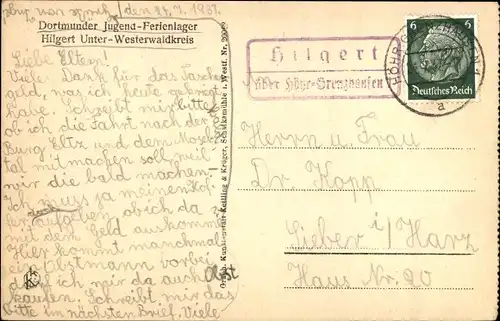 den 24.7.1937.
Dortmunder Jugend-Ferienlager
Hilgert Unter-Westerwaldkreis
Liebe Eltern!
Viele Dank für das Taschen
geld, was ich heute gekriegt
habe. Schreibt mir bitte
ob ich die Fahrt nach der
Burg Eltz und dem Mosel
tal mitmachen soll, weil
wir die bald machen.
Ich muss ja meinen Kof
fer aufgeben ob ich da
mit dem Geld auskomme
Hier kommt manchmal
ein Obstmann vorbei
darf ich mir da auch Obst
kaufen. Schreibt mir das
bitte im nächsten Brief. Viele
Hilgert
über Höhr-Grenzhausen
6 6
Deutsches Reich
a
Herrn u. Frau
Dr. Kopp
Lieber i/Harz
Haus Nr. 20